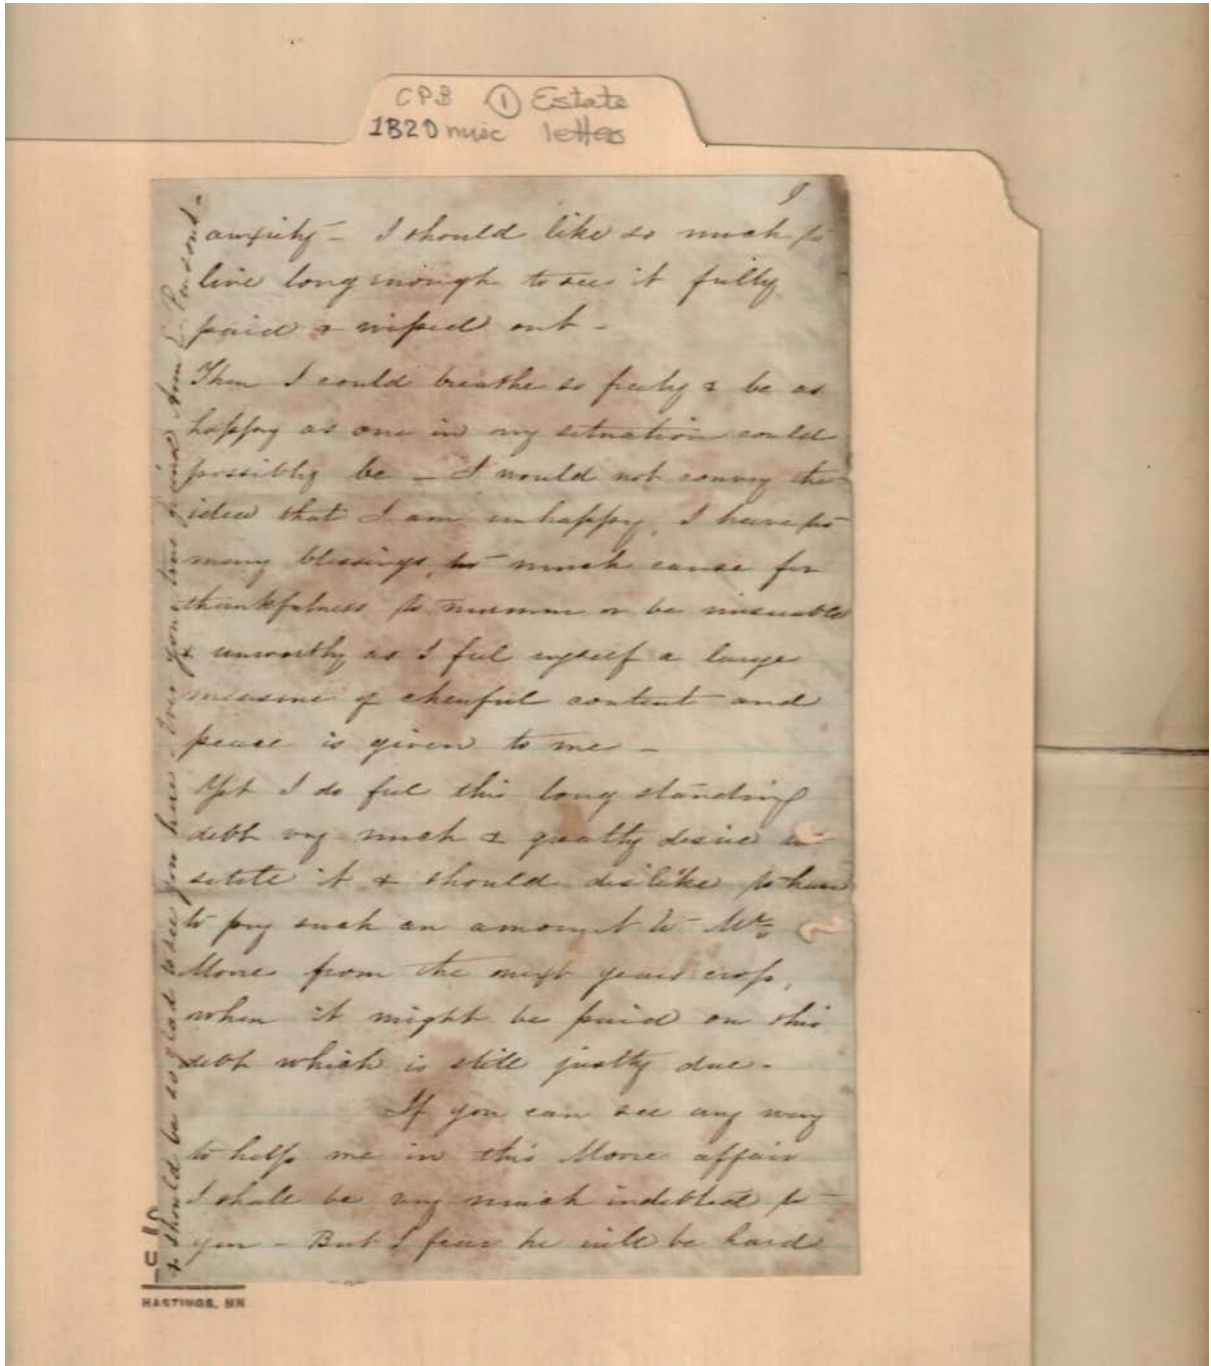 CPB ① Estate
1820 misc letter
9
anxiety - I should like so much to
live long enough to see it fully
paid & wiped out -
Then I could breathe so freely & be as
happy as one in my situation could
possibly be - I would not convey the
idea that I am unhappy, I have to
many blessings, to much cause for
thankfulness to murmur or be miserable
& unworthy as I feel myself a large
measure of cheerful content and
peace is given to me -
Yet I do feel this long standing
debt very much & greatly desire to
settle it & should dislike to have
to pay such an amount to Mr.
Mone from the next years crop,
when it might be paid on this
debt which is still justly due -
If you can see any way
to help me in this Mone affair
I shall be very much indebted to
you - But I fear he will be hard
& should be so glad to see you here. Ever your true friend Ann L. Parsons -
HASTINGS, MN